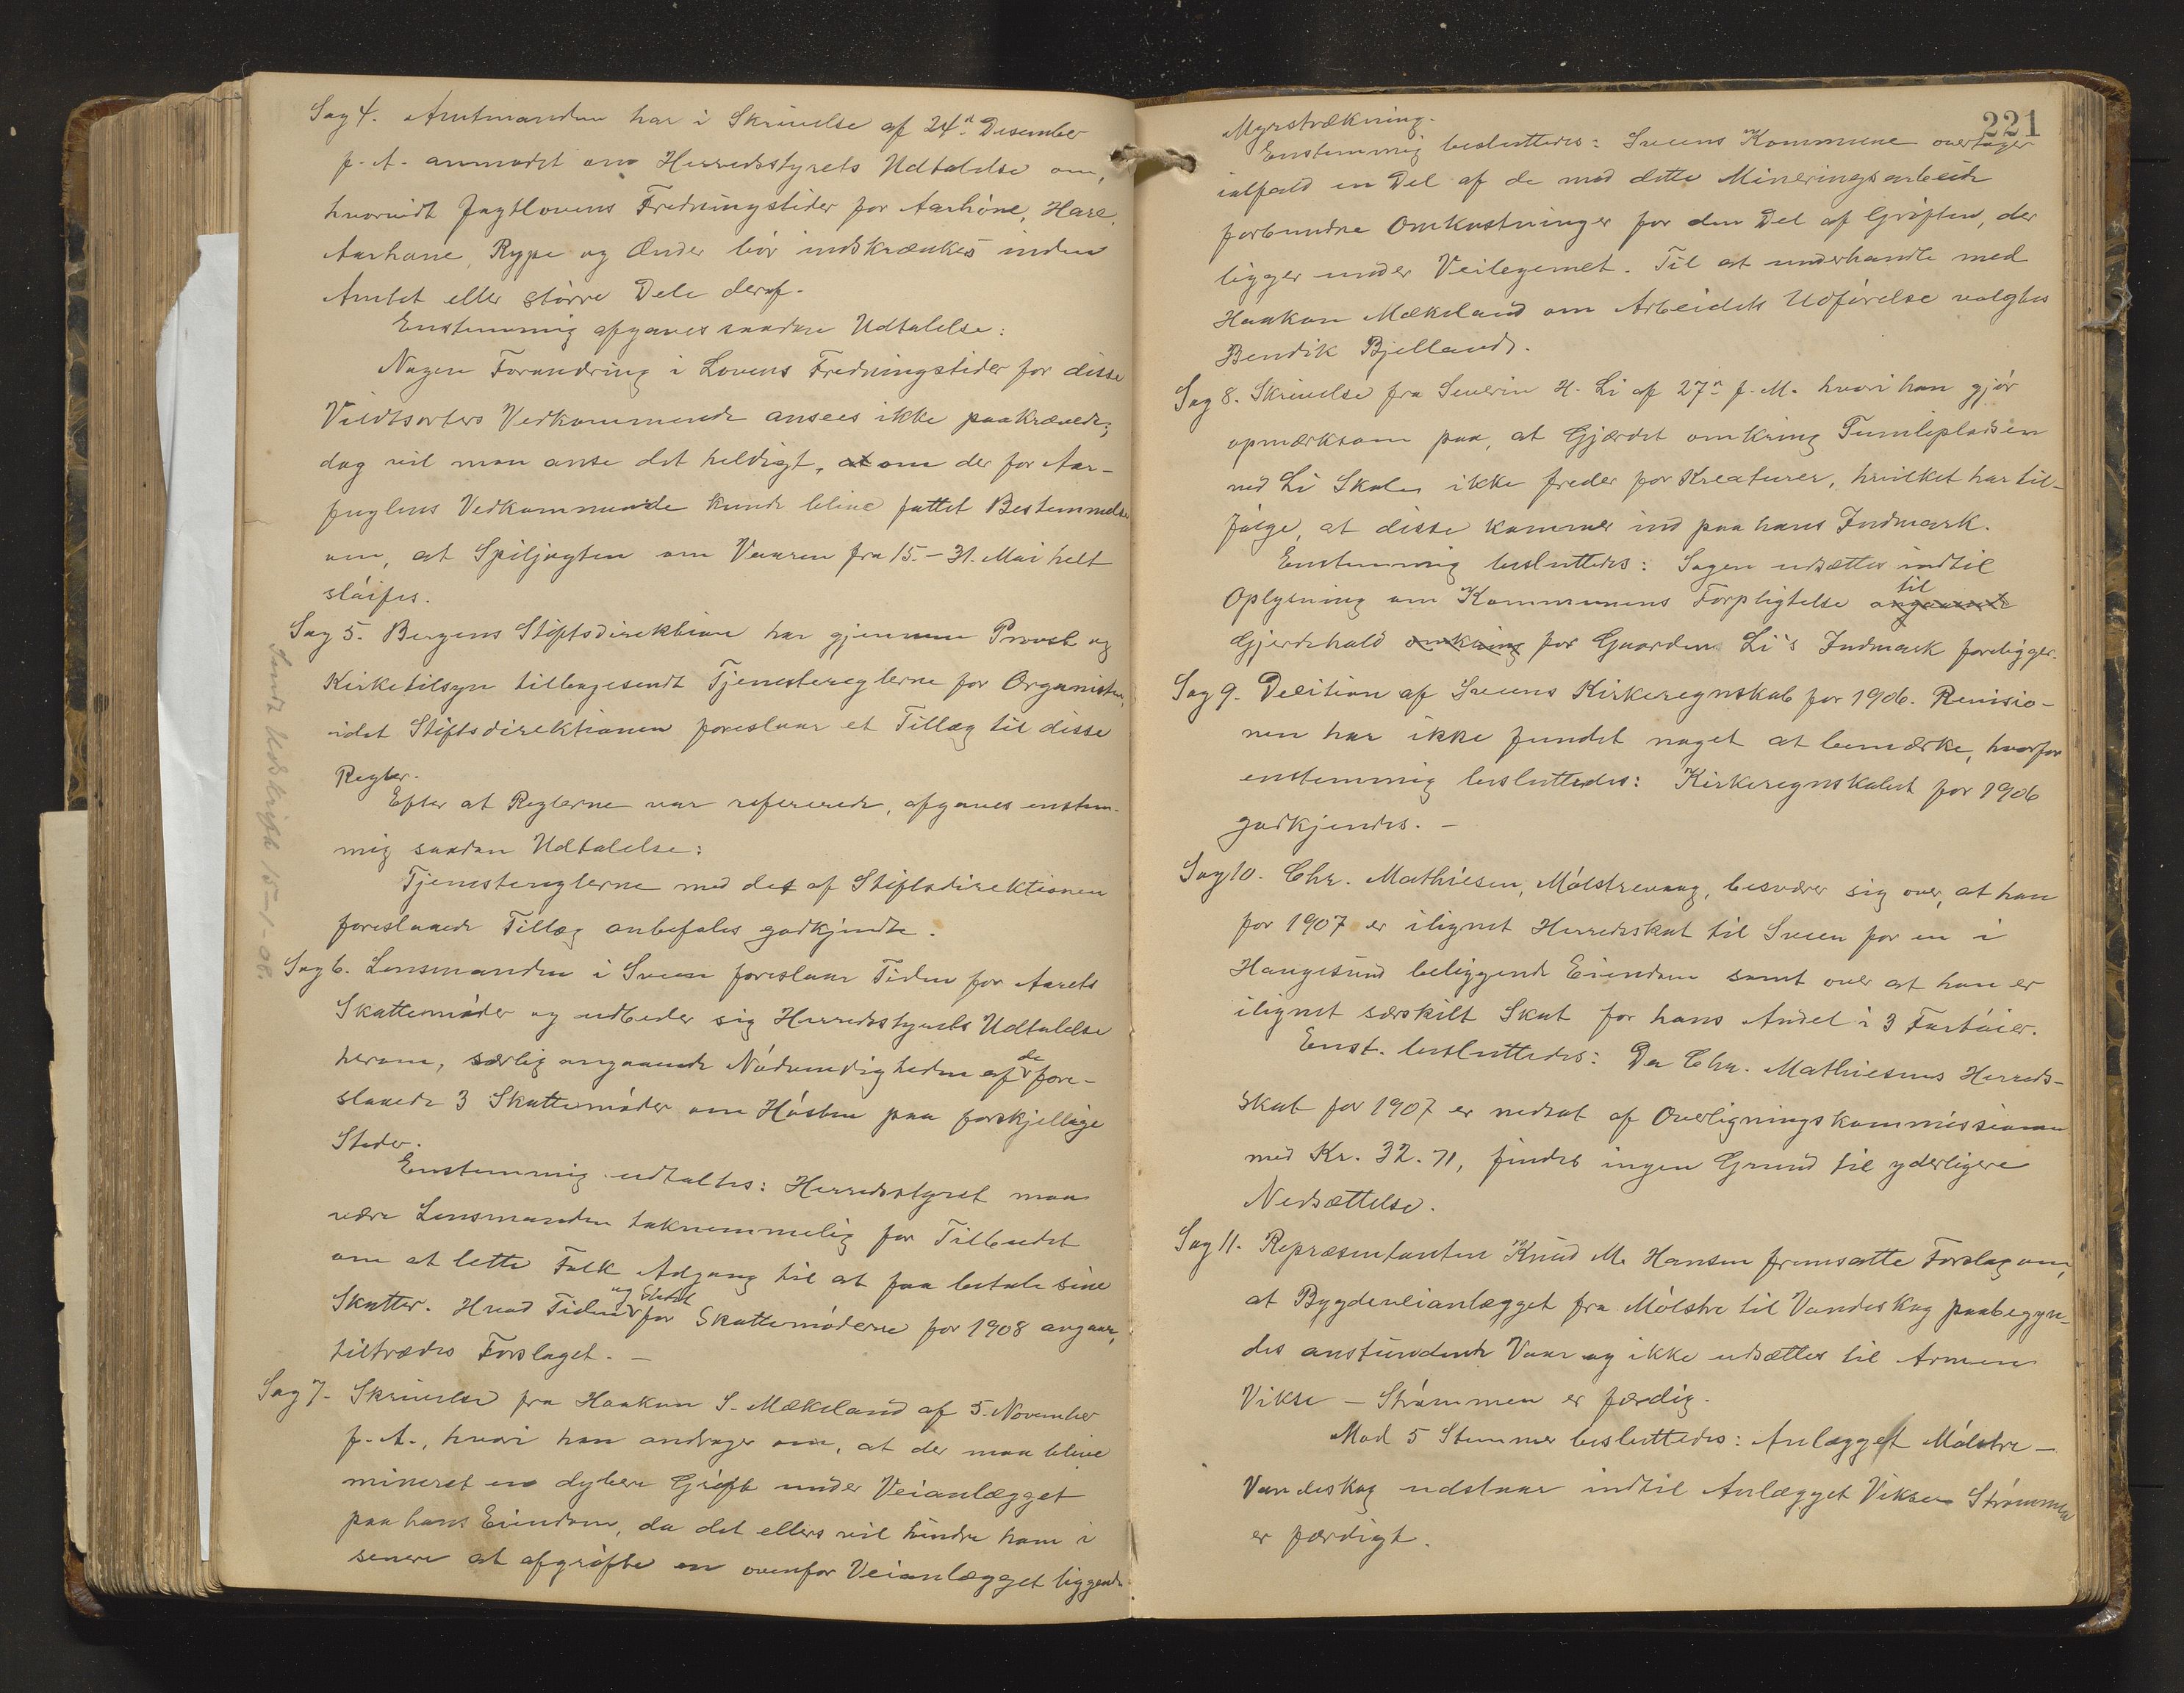 Sag 4. Amtmanden har i Skrivelse af 24de Desember
f. A. anmodet om Herredsstyrets Udtalelse om,
hvorvidt Jagtlovens Fredningstider for Aarhöne, Hare,
Aarhane, Rype og Ænder bör indskrænkes inden
Amtet eller större Dele deraf.
Enstemmig afgaves saadan Udtalelse:
Nogen Forandring i Lovens Fredningstider for disse
Vildtsorters Vedkommende ansees ikke paakrævede;
dog vil man anse det heldigt, at om der for Aar-
fuglens Vedkommende kunde blive fattet Bestemmelse
om, at Spiljagten om Vaaren fra 15.-31. Mai helt
slöifes.
Sag 5. Bergens Stiftsdirektion har gjennem Provst og
Kirketilsyn tilbagesendt Tjenestereglerne for Organisten,
idet Stiftsdirektionen foreslaar et Tillæg til disse
Regler.
Efter at Reglerne var refererede, afgaves enstem-
mig saadan Udtalelse:
Tjenestereglerne med det af Stiftsdirektionen
foreslaaede Tillæg anbefales godkjendte.
Sendt Udskrift 15-1-08.
Sag 6. Lensmanden i Sveen foreslaar Tiden for Aarets
Skattemöder og udbeder sig Herredsstyrets Udtalelse
herom, særlig angaaende Nödvendigheden af de fore-
slaaede 3 Skattemöder om Hösten paa forskjellige
Steder.
Enstemmig udtaltes: Herredsstyret maa
være Lensmanden taknemmelig for Tilbudet
om at lette Folk Adgang til at faa betale sine
Skatter. Hvad Tiden og Stedet for Skattemöderne for 1908 angaar,
tiltrædes Forslaget. —
Sag 7. Skrivelse fra Haakon S. Mækeland af 5. November
f. A., hvori han andrager om, at der maa blive
mineret en dybere Gröft under Veianlægget
paa hans Eiendom, da det ellers vil hindre ham i
senere at afgröfte en ovenfor Veianlægget liggende
221
Myrstrækning.
Enstemmig besluttedes: Sveens Kommune overtager
ialfald en Del af de med dette Mineringsarbeide
forbundne Omkostninger for den Del af Gröften, der
ligger under Veilegemet. Til at underhandle med
Haakon Mækeland om Arbeidets Udförelse valgtes
Bendik Bjelland.
Sag 8. Skrivelse fra Severin H. Li af 27de f. M. hvori han gjör
opmærksom paa, at Gjærdet omkring Tumlepladsen
ved Li Skole ikke freder for Kreaturer, hvilket har til-
fölge, at disse kommer ind paa hans Indmark.
Enstemmig besluttedes: Sagen udsættes indtil
Oplysning om Kommunens Forpligtelse angaaende til
Gjerdehold omkring for Gaarden Li's Indmark foreligger.
Sag 9. Decition af Sveens Kirkeregnskab for 1906. Revisio-
nen har ikke fundet noget at bemærke, hvorfor
enstemmig besluttedes: Kirkeregnskabet for 1906
godkjendes. —
Sag 10. Chr. Mathiesen, Mölstrevaag, besværer sig over, at han
for 1907 er ilignet Herredsskat til Sveen for en i
Haugesund beliggende Eiendom samt over at han er
ilignet særskilt Skat for hans Andel i 3 Fartöier.
Enst. besluttedes: Da Chr. Mathiesens Herreds-
skat for 1907 er nedsat af Overligningskommissionen
med Kr. 32.71, findes ingen Grund til yderligere
Nedsættelse.
Sag 11. Repræsentanten Knud M. Hansen fremsatte Forslag om,
at Bygdeveianlægget fra Mölstre til Vandeskog paabegyn-
des anstundende Vaar og ikke udsættes til Armen
Vikse – Strömmen er færdig.
Mod 5 Stemmer besluttedes: Anlægget Mölstre –
Vandeskog udstaar indtil Anlægget Vikse – Strömmen
er færdigt.